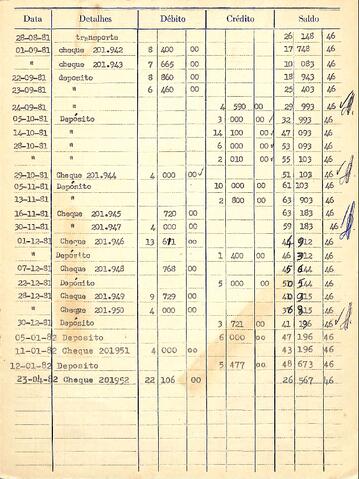 Data Detalhes Débito Crédito Saldo
28-08-81 transporte 26 148 46
01-09-81 cheque 201.942 8 400 00 17 748 46
" cheque 201.943 7 665 00 10 083 46
22-09-81 deposito 8 860 00 18 943 46
23-09-81 " 6 460 00 25 403 46
24-09-81 " 4 590 00 29 993 46
05-10-81 Depósito 3 000 00 32 993 46
14-10-81 " 14 100 00 47 093 46
28-10-81 " 6 000 00 53 093 46
" " 2 010 00 55 103 46
29-10-81 Cheque 201.944 4 000 00 51 103 46
05-11-81 Depósito 10 000 00 61 103 46
13-11-81 " 2 800 00 63 903 46
16-11-81 Cheque 201.945 720 00 63 183 46
30-11-81 " 201.947 4 000 00 59 183 46
01-12-81 Cheque 201.946 13 00 46
" Depósito 1 400 00 46 46
07-12-81 Cheque 201.948 768 00 46
22-12-81 Depósito 5 000 00 46
28-12-81 Cheque 201.949 9 729 00 46
" Cheque 201.950 4 000 00 46
30-12-81 Depósito 3 721 00 41 196 46
05-01-82 Deposito 6 000 00 47 196 46
11-01-82 Cheque 201951 4 000 00 43 196 46
12-01-82 Deposito 5 477 00 48 673 46
23-04-82 Cheque 201952 22 106 00 26 567 46